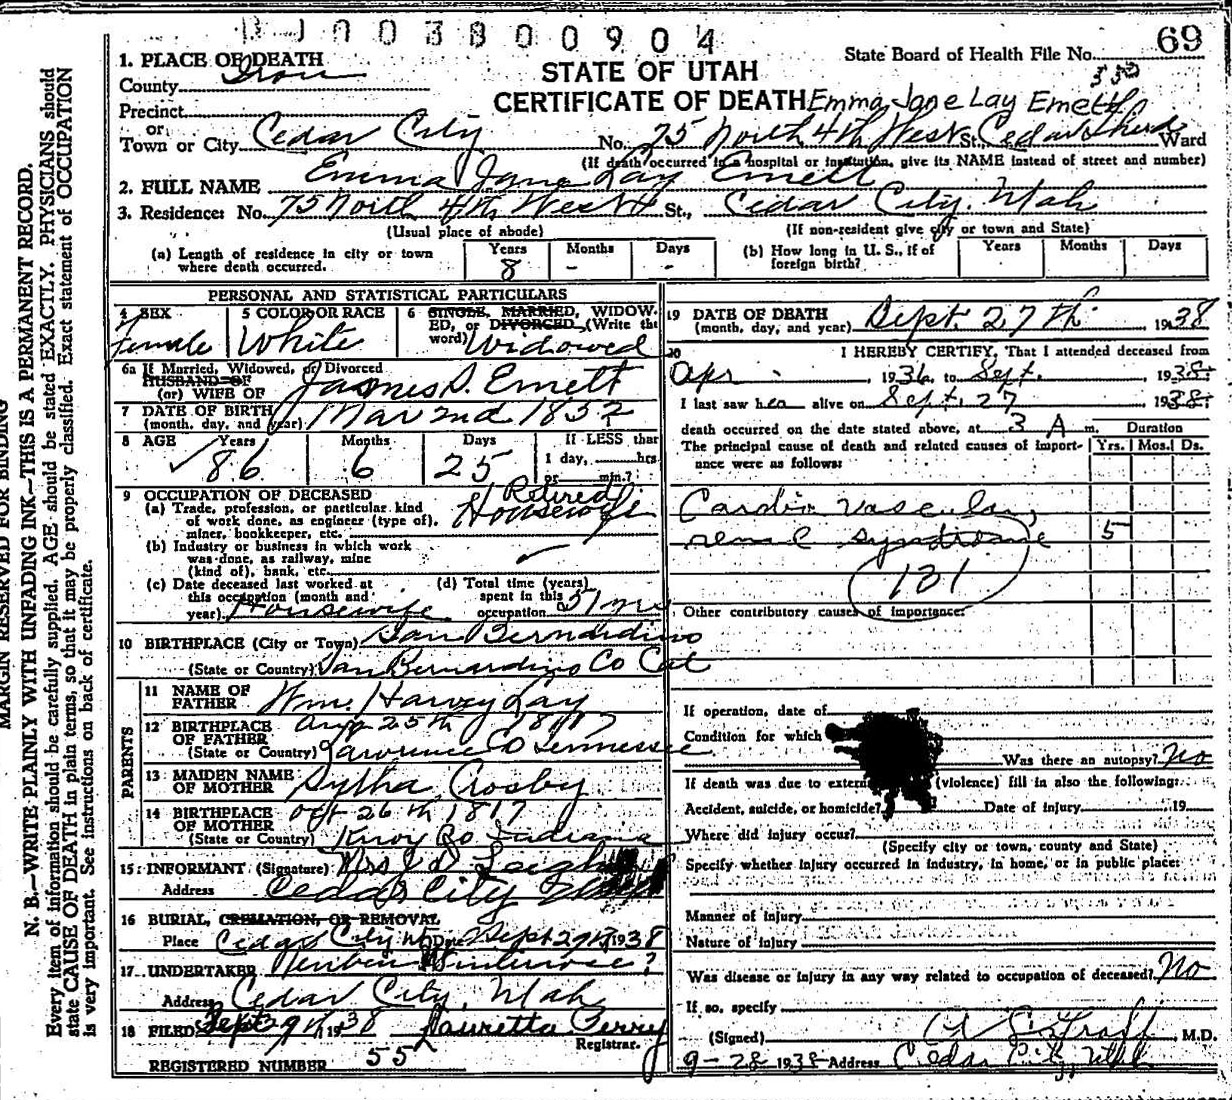 DJ003800904
69
State Board of Health File No.
1. PLACE OF DEATH
County Iron
STATE OF UTAH
CERTIFICATE OF DEATH Emma Jane Lay Emett
Precinct
or
Town or City Cedar City No. 75 North 4th West St., Ward
(If death occurred in a hospital or institution, give its NAME instead of street and number)
2. FULL NAME Emma Jane Lay Emett
3. Residence: No. 75 North 4th West St., Cedar City, Utah
(Usual place of abode) (If non-resident give city or town and State)
(a) Length of residence in city or town where death occurred. Years 8 Months - Days -
(b) How long in U. S., if of foreign birth? Years Months Days
PERSONAL AND STATISTICAL PARTICULARS
4 SEX Female
5 COLOR OR RACE White
6 SINGLE, MARRIED, WIDOWED, or DIVORCED (Write the word) Widowed
6a If Married, Widowed, or Divorced
HUSBAND OF
(or) WIFE OF James S. Emett
7 DATE OF BIRTH
(month, day, and year) Mar 2nd 1852
8 AGE Years 86 Months 6 Days 25 If LESS than 1 day, hrs. or min.?
9 OCCUPATION OF DECEASED
(a) Trade, profession, or particular kind of work done, as engineer (type of), miner, bookkeeper, etc. Retired Housewife
(b) Industry or business in which work was done, as railway, mine (kind of), bank, etc.
(c) Date deceased last worked at this occupation (month and year) Housewife
(d) Total time (years) spent in this occupation 51
10 BIRTHPLACE (City or Town) San Bernardino
(State or Country) San Bernardino Co Cal
PARENTS
11 NAME OF FATHER Wm. Harvey Lay
12 BIRTHPLACE OF FATHER Aug 25th 1817
(State or Country) Lawrence Co Tennessee
13 MAIDEN NAME OF MOTHER Sytha Crosby
14 BIRTHPLACE OF MOTHER Oct 26th 1817
(State or Country) Knox Co Indiana
15 INFORMANT (Signature) Mrs Leigh
Address Cedar City
16 BURIAL, CREMATION, OR REMOVAL
Place Cedar City Ut Date Sept 29th 1938
17 UNDERTAKER
Address Cedar City, Utah
18 FILED Sept 29th 1938 Lauretta Perry
Registrar.
REGISTERED NUMBER 55
19 DATE OF DEATH
(month, day, and year) Sept. 27th 1938
20 I HEREBY CERTIFY, That I attended deceased from
Apr 1936 to Sept. 1938
I last saw her alive on Sept. 27 1938
death occurred on the date stated above, at 3 A m. Duration
The principal cause of death and related causes of importance were as follows: Yrs. Mos. Ds.
Cardio vascular,
renal syndrome 5
131
Other contributory causes of importance:
If operation, date of
Condition for which
Was there an autopsy? No
If death was due to extern (violence) fill in also the following:
Accident, suicide, or homicide? Date of injury 19
Where did injury occur?
(Specify city or town, county and State)
Specify whether injury occurred in industry, in home, or in public place:
Manner of injury
Nature of injury
Was disease or injury in any way related to occupation of deceased? No
If so, specify
(Signed) M.D.
9-28 1938 Address Cedar City, Utah
MARGIN RESERVED FOR BINDING
N. B.—WRITE PLAINLY WITH UNFADING INK—THIS IS A PERMANENT RECORD.
Every item of information should be carefully supplied. AGE should be stated EXACTLY. PHYSICIANS should
state CAUSE OF DEATH in plain terms, so that it may be properly classified. Exact statement of OCCUPATION
is very important. See instructions on back of certificate.